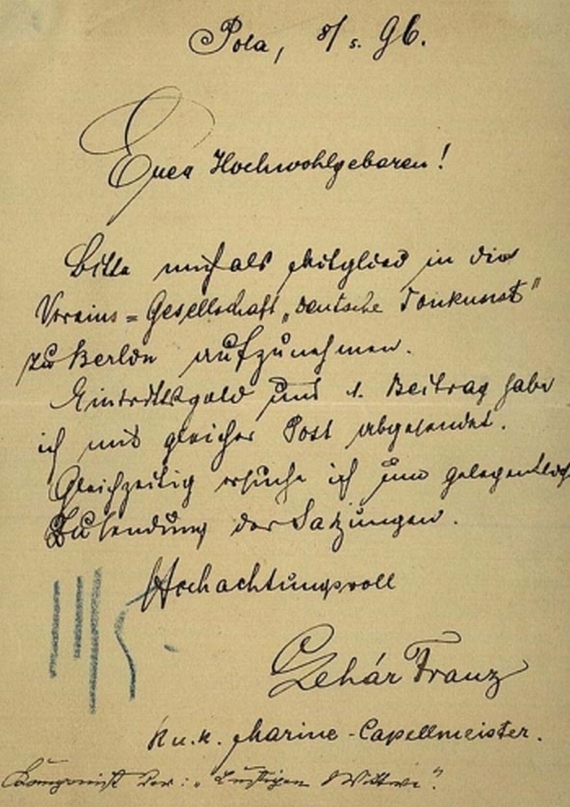 Pola, 8/5. 96.
Euer Hochwohlgeboren!
Bitte mich als Mitglied in die
Vereins = Gesellschaft "deutsche Tonkunst"
zu Berlin aufzunehmen.
Eintrittsgeld und 1. Beitrag habe
ich mit gleicher Post abgesendet.
Gleichzeitig ersuche ich um gelegentlich
Zusendung der Satzungen.
Hochachtungsvoll
Lehár Franz
k.u.k. Marine-Capellmeister.
Komponist der: "Lustigen Witwe".